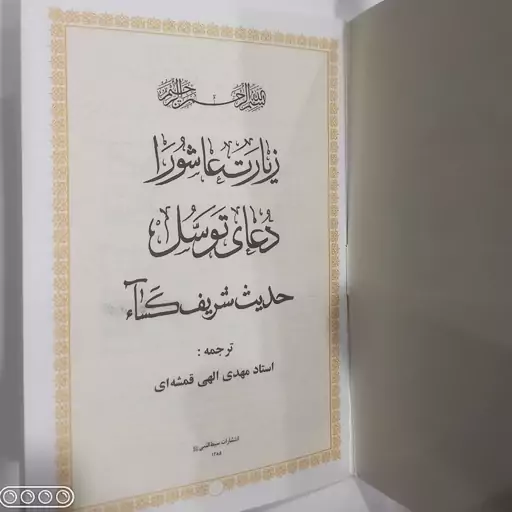 بسم الله الرحمن الرحیم
زیارت عاشورا
دعای توسل
حدیث شریف کساء
ترجمه :
استاد مهدی الهی قمشه‌ای
انتشارات سبط النبی
۱۳۸۵